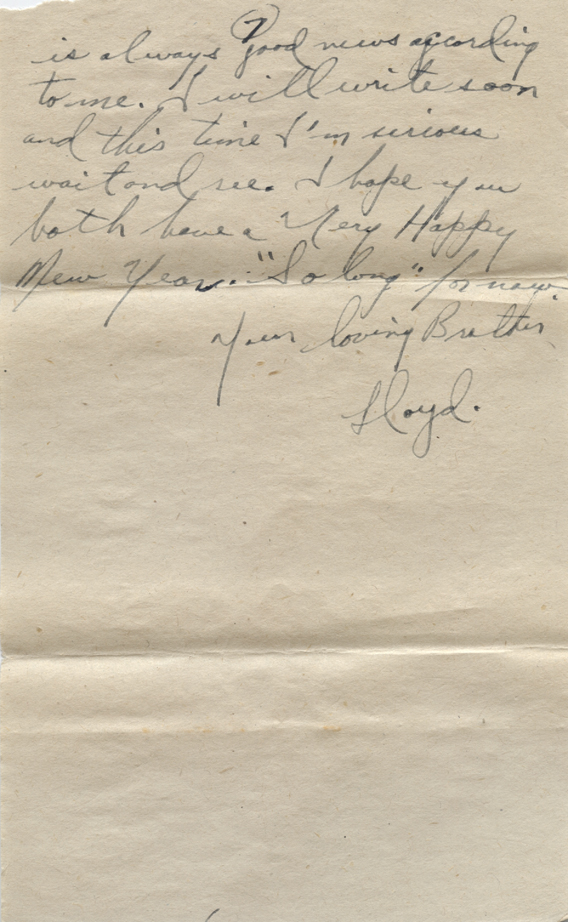 7
is always good news according
to me. I will write soon
and this time I'm serious
wait and see. I hope you
both have a Very Happy
New Year. "So long" for now.
Your loving Brother
Lloyd.